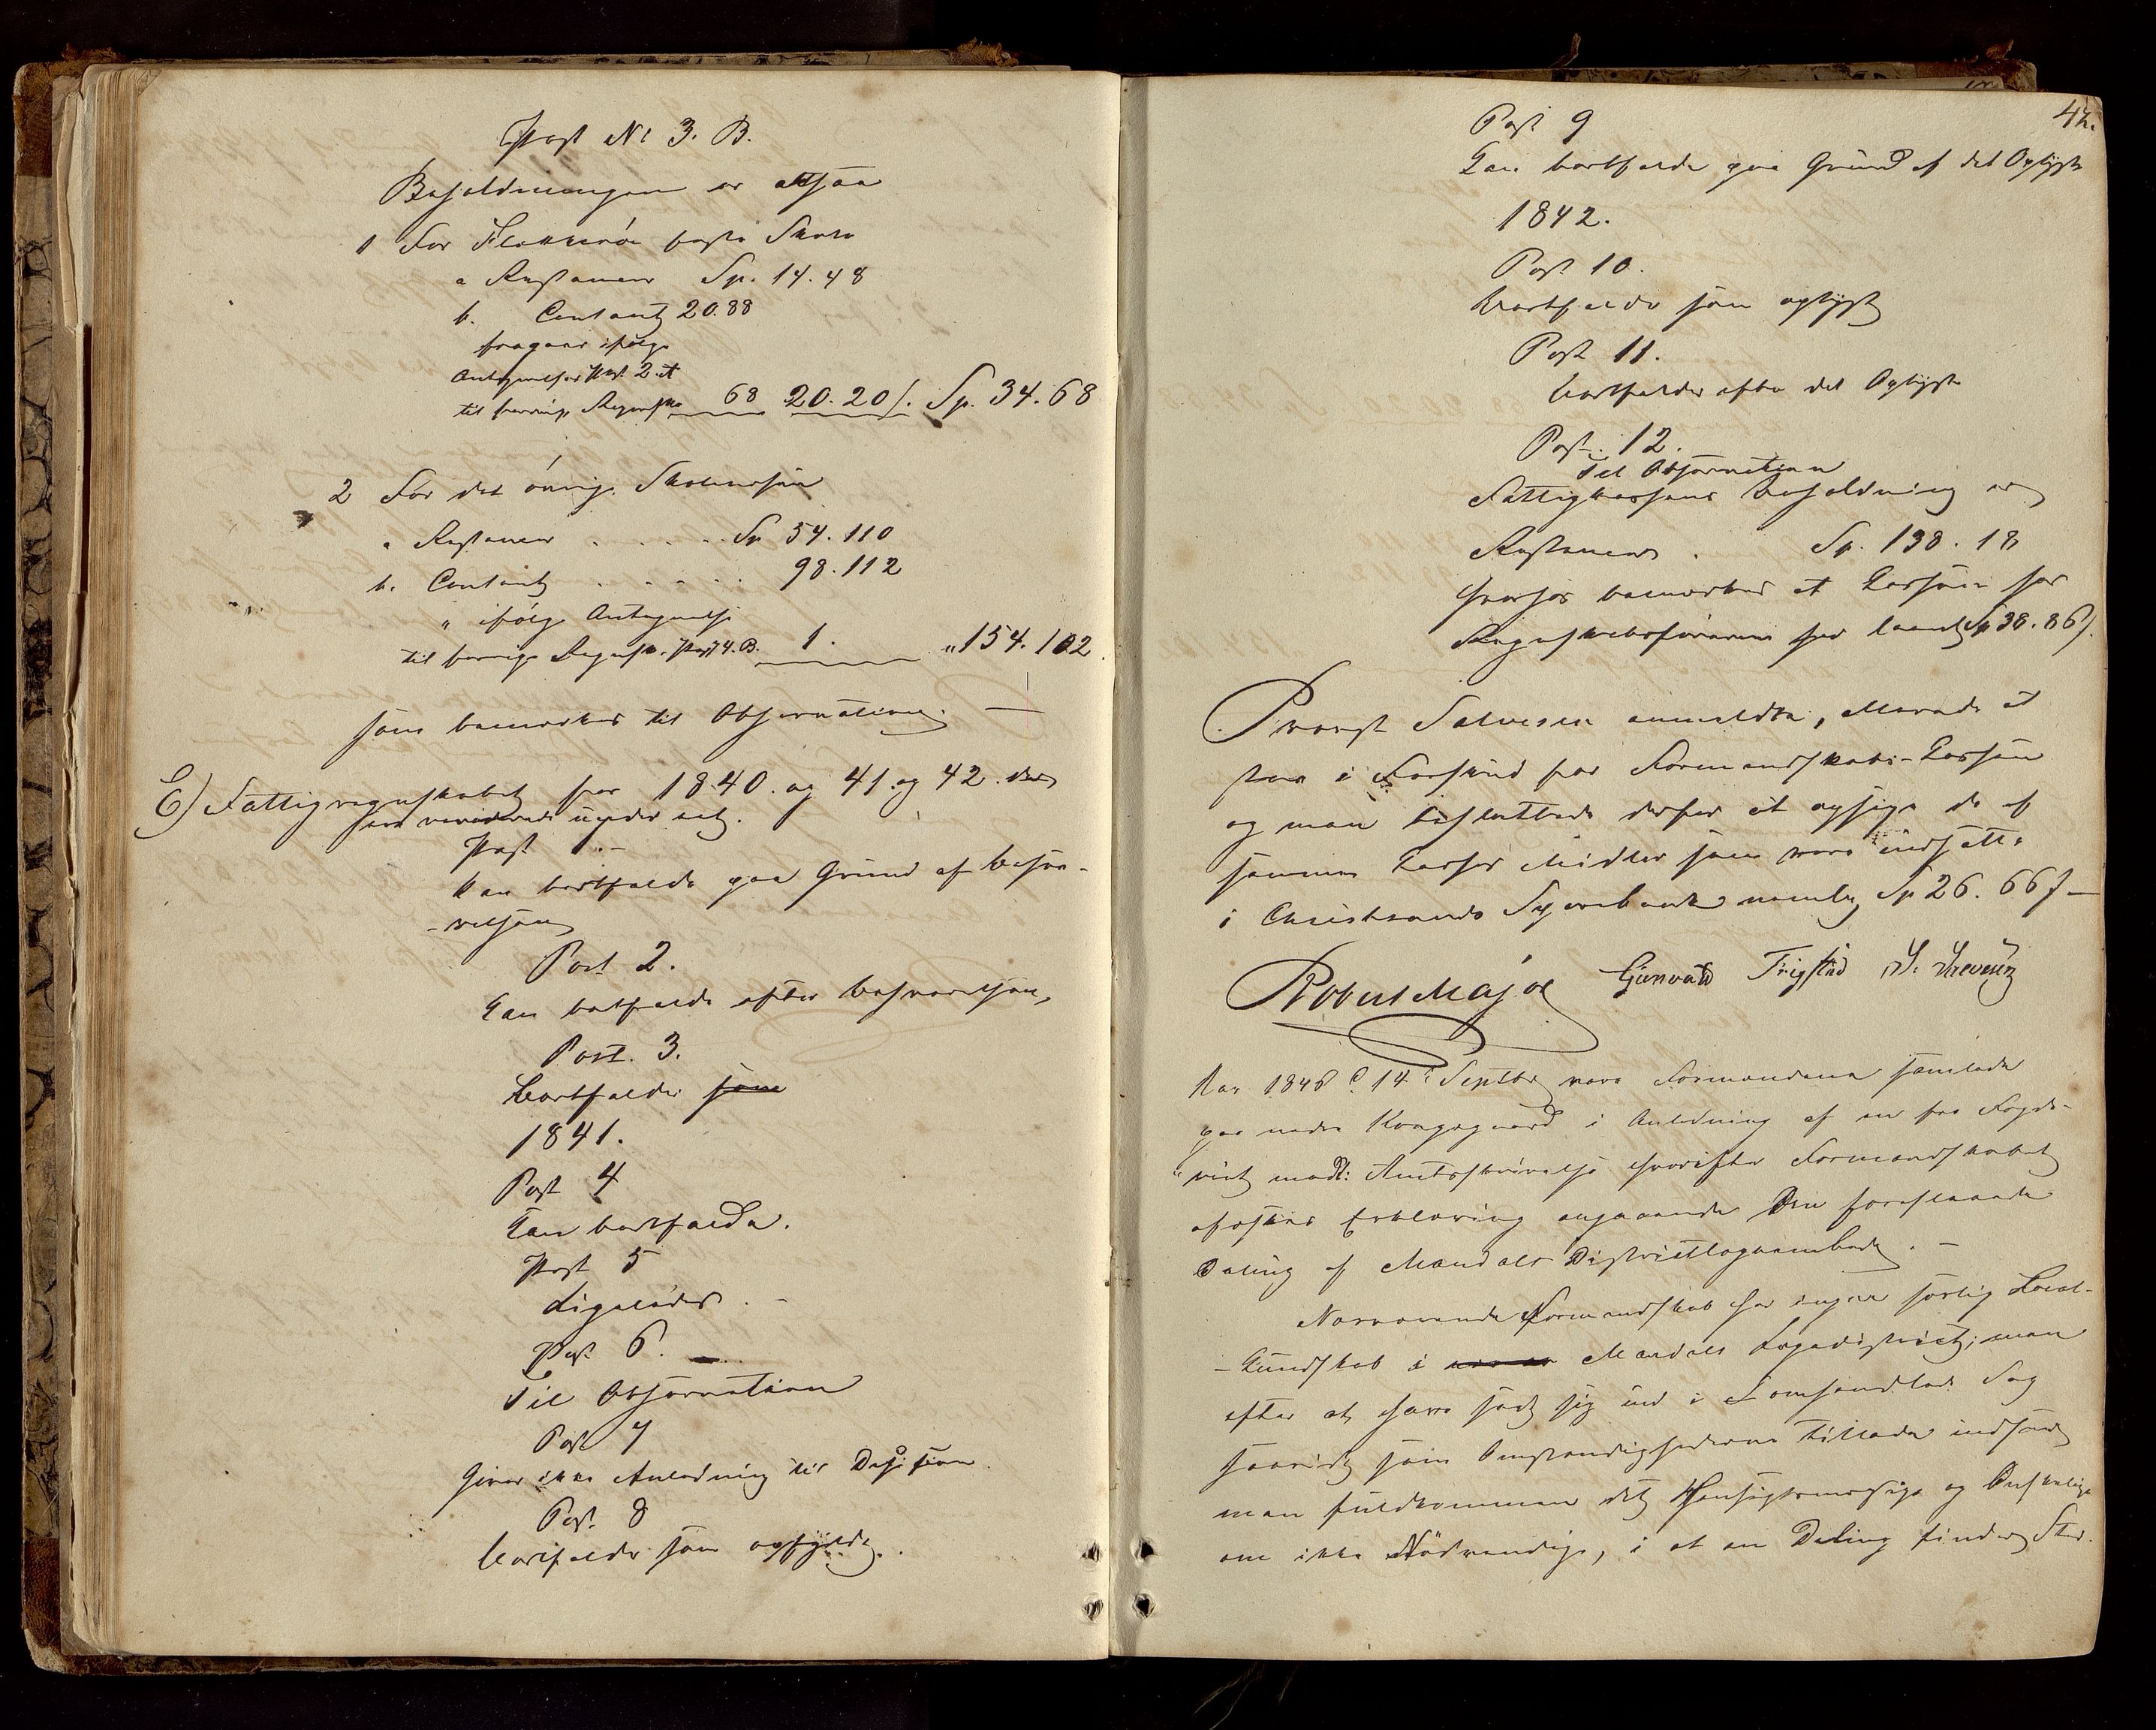 Post No 3. B.
Beholdningen er altsaa
1 For Flekkerøe faste Skole
a Restancer Sp. 14. 48
b. Contant 20. 88
fragaar ifølge
Antegnelser Post 2. A
til forrige Regnskab 68 20. 20/. Sp. 34. 68
2 For det øvrige Skolevæsen
a Restancer . . . . . Sp 54. 110
b. Contant . . . . . 98. 112
" ifølge Antegnelse
til forrige Regnsk. Post 4. B. 1. " 154. 102.
som bemærkes til Observation. —
E) Fattigregnskabet for 1840. og 41. og 42. der
ere reviderede under eet.
Post 1. –
kan bortfalde paa Grund af Besva-
-relsen
Post 2.
Kan bortfalde efter Besvarelsen,
Post. 3.
Bortfalder som
1841.
Post 4
Kan bortfalde.
Post 5
Ligeledes . –
Post 6.
Til Observation
Post 7
Giver ikke Anledning til Desision.
Post. 8
bortfalder som opfyldt.
42.
Post 9
Kan bortfalde paa Grund af det Oplyste
1842.
Post 10.
Bortfalder som oplyst
Post 11.
bortfalder efter det Oplyste
Post. 12.
Til Observation
Fattigkassens Beholdning er
Restancer . Sp. 138. 18
hvorhos bemærkes at Kassen har
Regnskabsføreren har laant Sp 38. 86/.
Provst Salvesen anmeldte, at
i Forskud for Formandskabs-Kassen
og man besluttede derfor at opsige de af
samme Kasses Midler som vare indsatte
i Christsands Sparebank nemlig Sp 26. 66/ –
Robert Major Gunvald Trigstad
Aar 1848 d 14de Septbr vare Formændene samlede
paa nedre Kongsgaard i Anledning af en fra Fogde-
riet modt: Amtsskrivelse hvorefter Formandskabet
afæskes Erklæring angaaende Den foreslaaede
Deling af Mandals Districtlægeembede. –
Nærværende Formandskab har ingen særlig Local-
-kundskab i Mandals Lægedistrict; men
efter at have sadt sig ind i Sag
saavidt som Omstændighederne tillade indseer
man fuldkommen det Hensigtsmæssige og Ønskelige
om ikke Nødvendige, i at en Deling finder Sted.